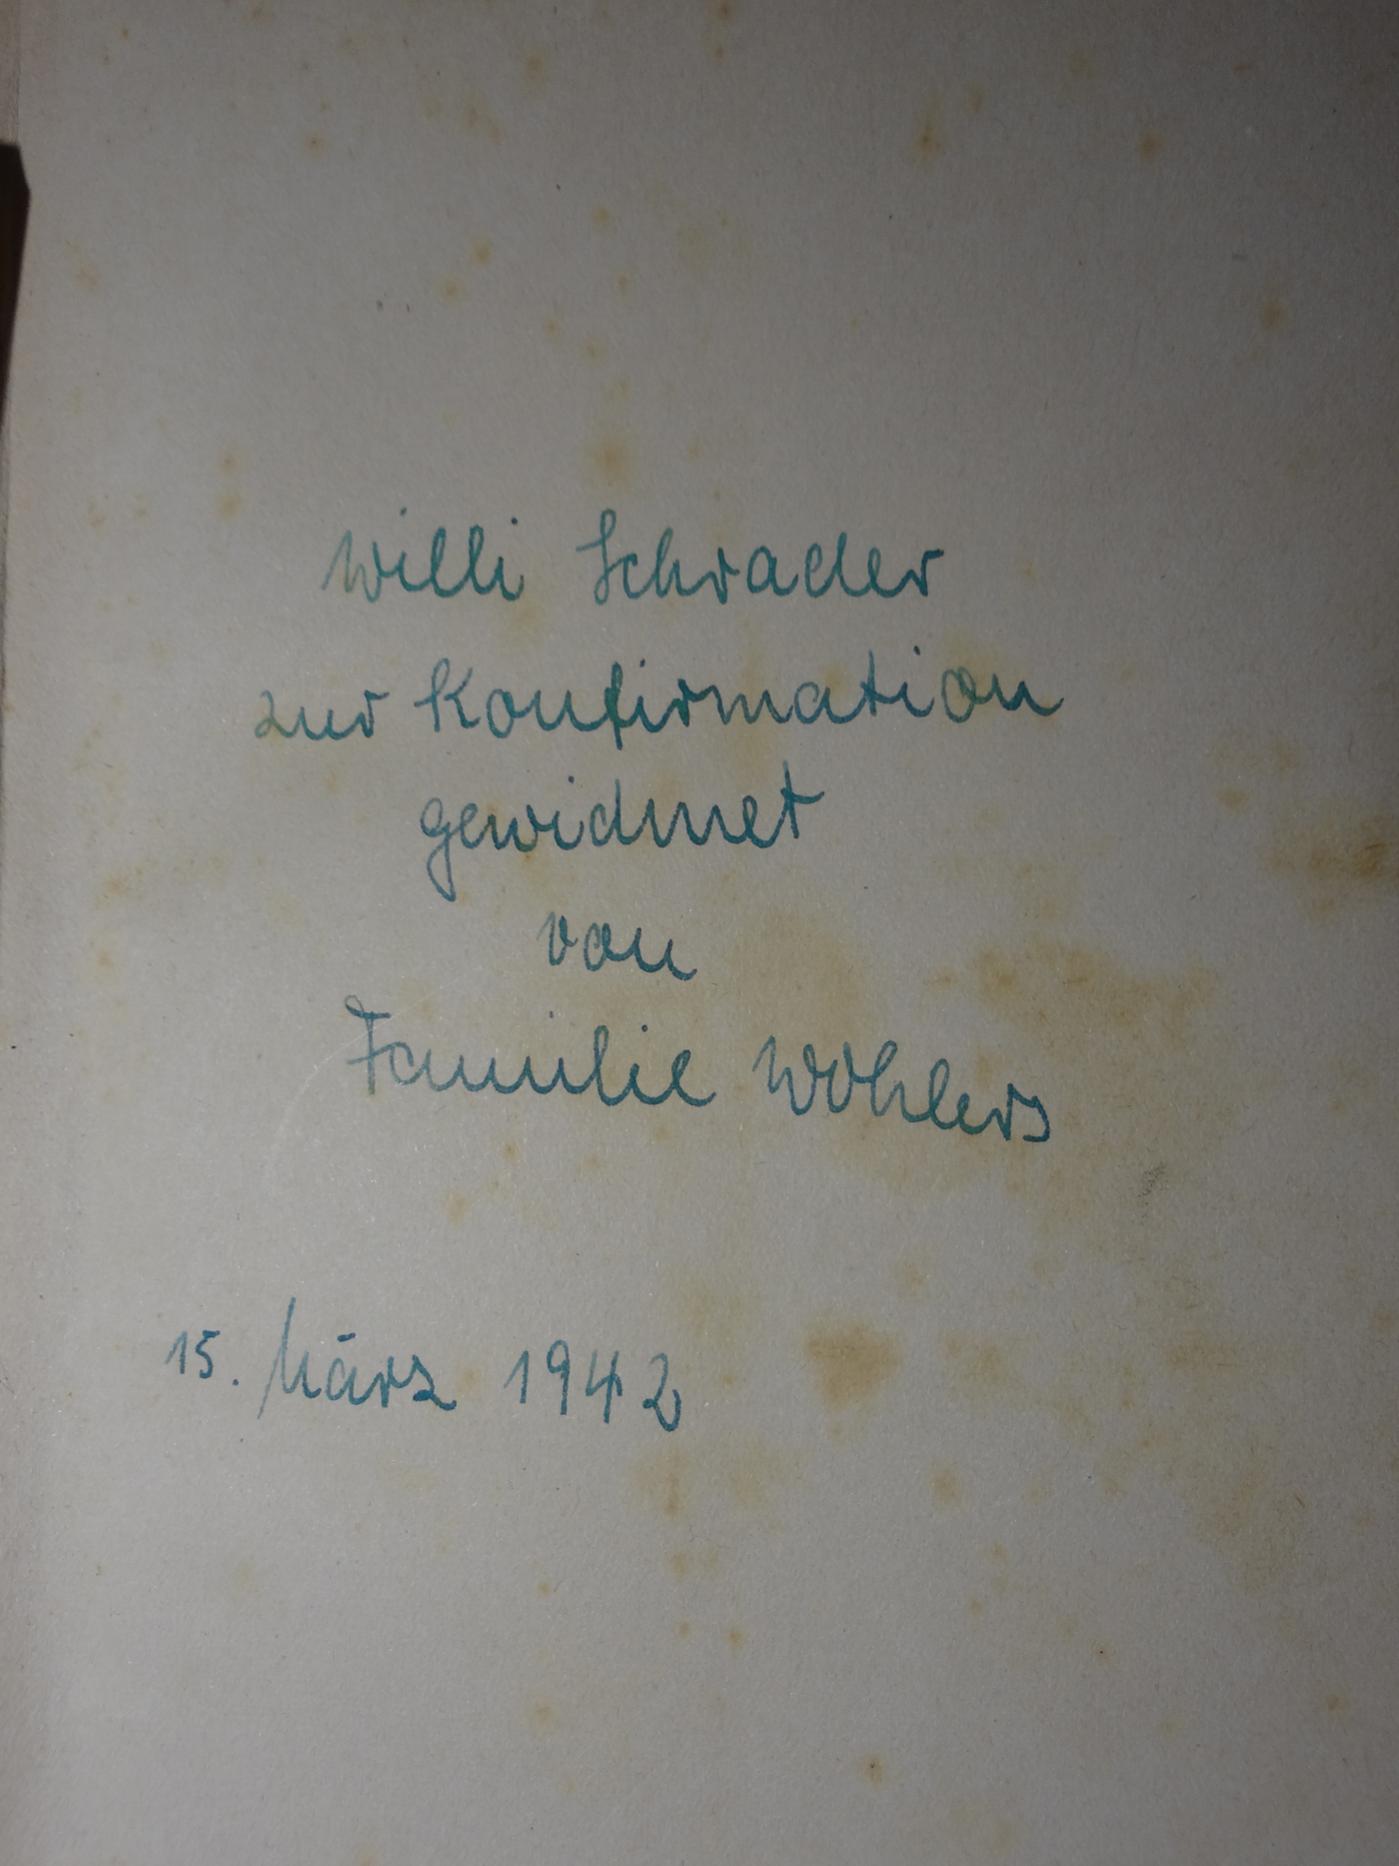 Willi Schrader
zur Konfirmation
gewidmet
von
Familie Wohlers
15. März 1942